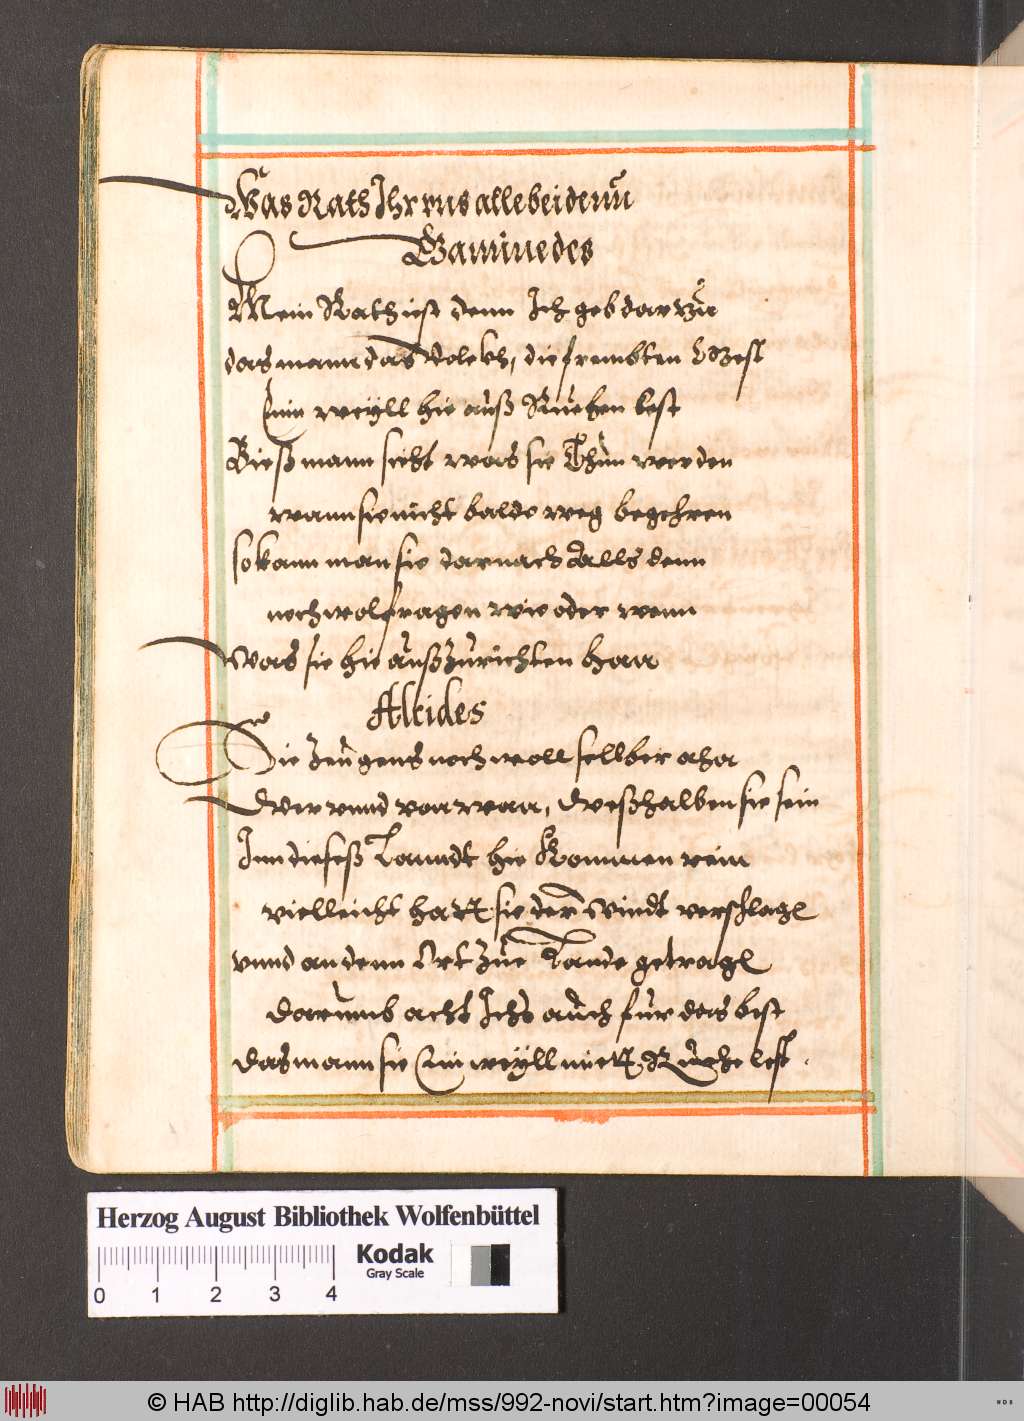 Was Rath Ihr uns alle beide nŭ
Gaminedes
Mein Rath ist denn Ich geb darzŭ
das mann das Volckh, die frembten Gest
Ein weyll hie auß Ruehen lest
Bieß mann sicht was sie Thun werden
wann sie nicht balde weg begehren
so kann man sie darnach alls denn
noch wol fragen wie oder wenn
Was sie hie außzurichten han
Alcides
Die zeugens noch woll sellber ahn
Wer unnd von wan, Weßhalben sie sein
Inn dieseß Lanndt hie Kommen rein
vielleicht hatt sie der Windt verschlagn
unnd an denn Ort zue Lande getragn
Darumb acht Ichs auch für das best
Das mann sie Ein weyll mitt Ruehe lest.
Herzog August Bibliothek Wolfenbüttel
Kodak
Gray Scale
0 1 2 3 4
© HAB http://diglib.hab.de/mss/992-novi/start.htm?image=00054